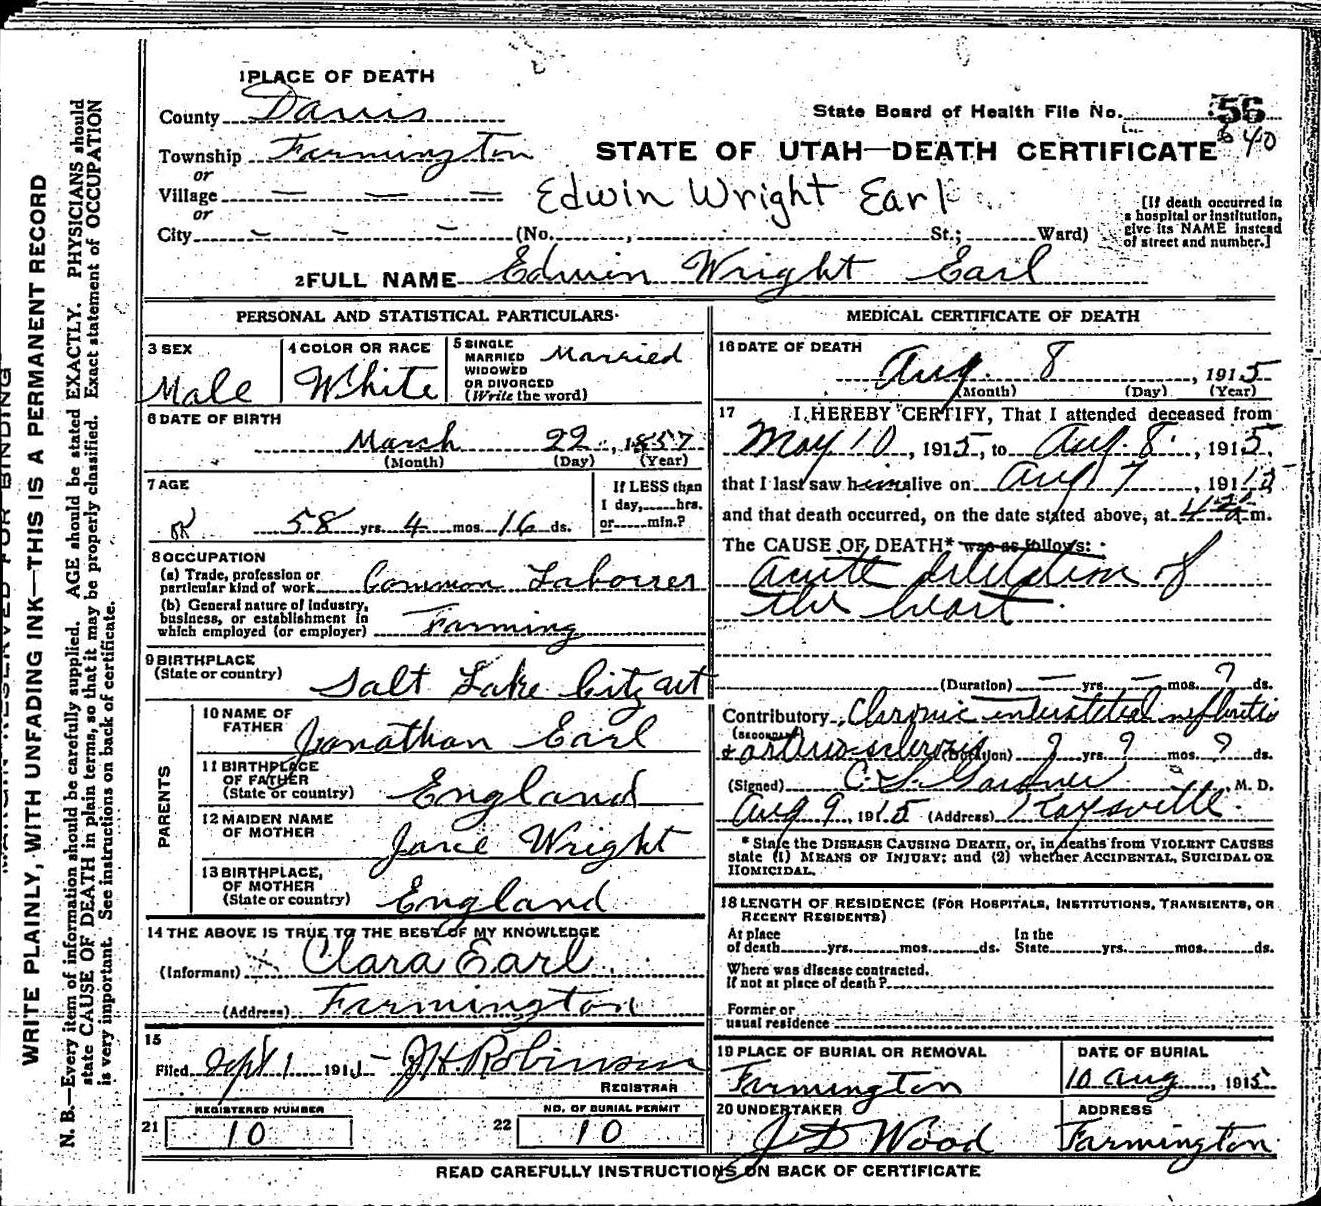 1 PLACE OF DEATH
County Davis
State Board of Health File No. 56
840
Township Farmington
STATE OF UTAH—DEATH CERTIFICATE
or
Village — — —
Edwin Wright Earl
or
City — — — (No. , St.; Ward)
[If death occurred in
a hospital or institution,
give its NAME instead
of street and number.]
2 FULL NAME Edwin Wright Earl
PERSONAL AND STATISTICAL PARTICULARS
3 SEX
Male
4 COLOR OR RACE
White
5 SINGLE
MARRIED
WIDOWED
OR DIVORCED
(Write the word)
Married
6 DATE OF BIRTH
March 22, 1857
(Month) (Day) (Year)
7 AGE
58 yrs. 4 mos. 16 ds.
If LESS than
1 day, hrs.
or min.?
8 OCCUPATION
(a) Trade, profession or
particular kind of work Common Laborer
(b) General nature of industry,
business, or establishment in
which employed (or employer) Farming
9 BIRTHPLACE
(State or country) Salt Lake City ut
PARENTS
10 NAME OF
FATHER Jonathan Earl
11 BIRTHPLACE
OF FATHER
(State or country) England
12 MAIDEN NAME
OF MOTHER Jane Wright
13 BIRTHPLACE,
OF MOTHER
(State or country) England
14 THE ABOVE IS TRUE TO THE BEST OF MY KNOWLEDGE
(Informant) X Clara Earl
(Address) Farmington
15
Filed Sept 1 1915 J H Robinson
REGISTRAR
REGISTERED NUMBER
21 10
NO. OF BURIAL PERMIT
22 10
MEDICAL CERTIFICATE OF DEATH
16 DATE OF DEATH
Aug. 8, 1915
(Month) (Day) (Year)
17 I HEREBY CERTIFY, That I attended deceased from
May 10, 1915, to Aug. 8, 1915,
that I last saw him alive on Aug 7, 1915
and that death occurred, on the date stated above, at m.
The CAUSE OF DEATH* was as follows:
acute diletation of
the heart.
(Duration) — yrs. — mos. ? ds.
Contributory Chronic interstitial nefhritis
(SECONDARY)
& arterio-sclerosis (Duration) ? yrs. ? mos. ? ds.
(Signed) C. S. Gardner, M. D.
Aug 9, 1915 (Address) Kaysville.
* State the DISEASE CAUSING DEATH, or, in deaths from VIOLENT CAUSES
state (1) MEANS OF INJURY; and (2) whether ACCIDENTAL, SUICIDAL OR
HOMICIDAL.
18 LENGTH OF RESIDENCE (FOR HOSPITALS, INSTITUTIONS, TRANSIENTS, OR
RECENT RESIDENTS)
At place
of death yrs. mos. ds.
In the
State yrs. mos. ds.
Where was disease contracted,
If not at place of death?
Former or
usual residence
19 PLACE OF BURIAL OR REMOVAL
Farmington
DATE OF BURIAL
10 Aug, 1915
20 UNDERTAKER
J D Wood
ADDRESS
Farmington
READ CAREFULLY INSTRUCTIONS ON BACK OF CERTIFICATE
WRITE PLAINLY, WITH UNFADING INK—THIS IS A PERMANENT RECORD
N. B.—Every item of information should be carefully supplied. AGE should be stated EXACTLY. PHYSICIANS should
state CAUSE OF DEATH in plain terms, so that it may be properly classified. Exact statement of OCCUPATION
is very important. See instructions on back of certificate.